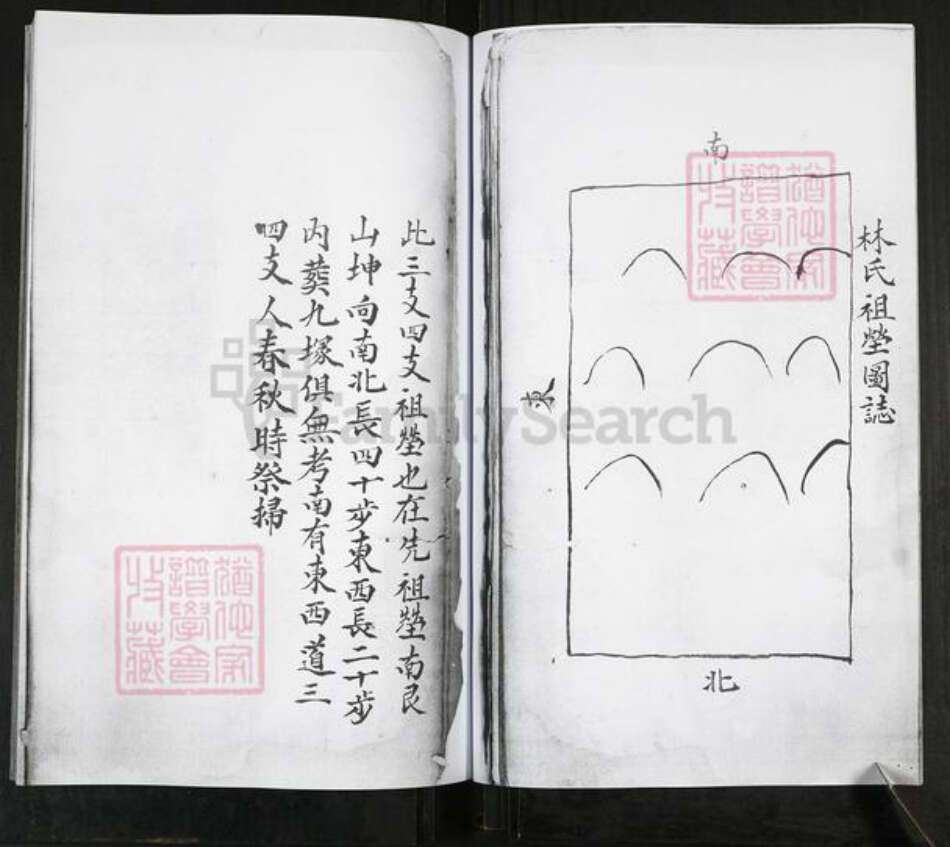 林氏祖塋圖誌
南
東
北
此三支四支祖塋也在先祖塋南艮
山坤向南北長四十步東西長二十步
內葬九塚俱無考南有東西道三
四支人春秋時祭掃
FamilySearch
譜學會
收藏
譜學會
收藏